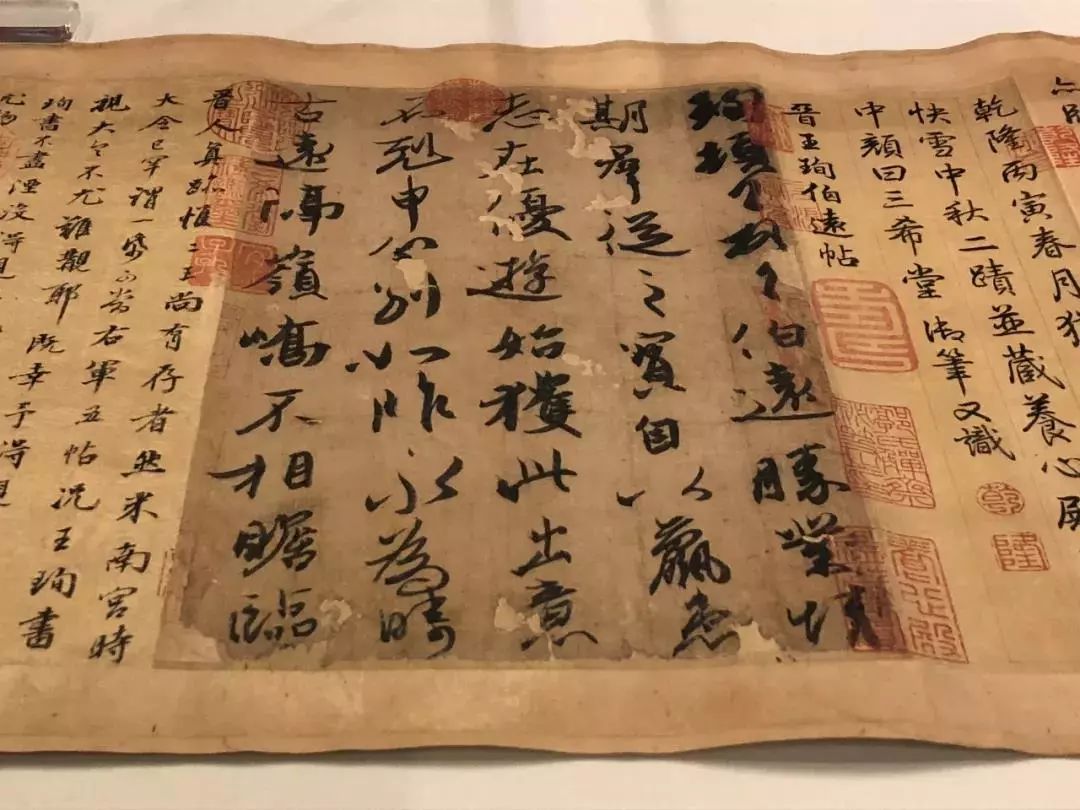 乾隆丙寅春月獲
快雪中秋二蹟並藏養心殿
中顏曰三希堂御筆又識
晉王珣伯遠帖
珣頓首頓首伯遠勝業情
期群從之寶自以羸患
志在優遊始獲此出意
不剋申分別如昨永為疇
古遠隔嶺嶠不相瞻臨
晉人真跡惟二王尚有存者然米南宮時
大令已罕謂一紙可當右軍五帖況王珣書
視大令不尤難覯耶既幸予得見
珣書不盡湮沒得見